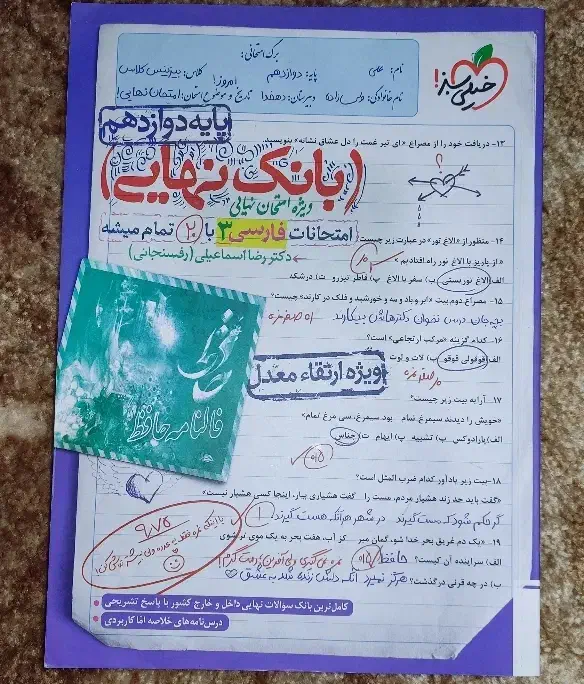 خیلی سبز!
برگ امتحانی:
نام: علی
پایه: دوازدهم
کلاس: بیزینس کلاس
نام خانوادگی:
دبیرستان: دهخدا
تاریخ و موضوع امتحان: امروز! امتحان نهایی!
پایه دوازدهم
۱۳- دریافت خود را از مصراع «ای تیر غمت را دل عشاق نشانه» بنویسید.
(بانک نهایی)
ویژه امتحان نهایی
امتحانات فارسی ۳ با ۲۰ تمام میشه
دکتر رضا اسماعیلی (رفسنجانی)
۱۴- منظور از «الاغ تور» در عبارت زیر چیست؟
«از پاریز با الاغ تور راه افتادیم.»
الف) الاغ توریستی ب) سفر با الاغ پ) قاطر تیزرو ت) درشکه
۱۵- مصراع دوم بیت «ابر و باد و مه و خورشید و فلک در کارند» چیست؟
بچه جان درس نخوان دکترهاش بیکارند
۱۶- کدام گزینه «مرکب ارتجاعی» است؟
الف) قوقولی قوقو ب) لات و لوت
ویژه ارتقاء معدل
۱۷- آرایه بیت زیر چیست؟
«خویش را دیدند سیمرغ تمام بود سیمرغ، سی مرغ تمام»
الف) پارادوکس ب) تشبیه پ) ایهام ت) جناس
فالنامه حافظ
۱۸- بیت زیر یادآور کدام ضرب المثل است؟
«گفت باید حد زند هشیار مردم، مست را گفت هشیاری بیار، اینجا کسی هشیار نیست»
گر حکم شود که مست گیرند در شهر هر آنکه هست گیرند
۱۹- «یک دم غریق بحر خدا شو، گمان مبر کز آب هفت بحر به یک موی تر شوی»
الف) سراینده آن کیست؟ حافظ
ب) در چه قرنی درگذشت؟ هرگز نمیرد آنکه دلش زنده شد به عشق
۹/۷۵
کامل‌ترین بانک سوالات نهایی داخل و خارج کشور با پاسخ تشریحی
درس‌نامه‌های خلاصه اما کاربردی